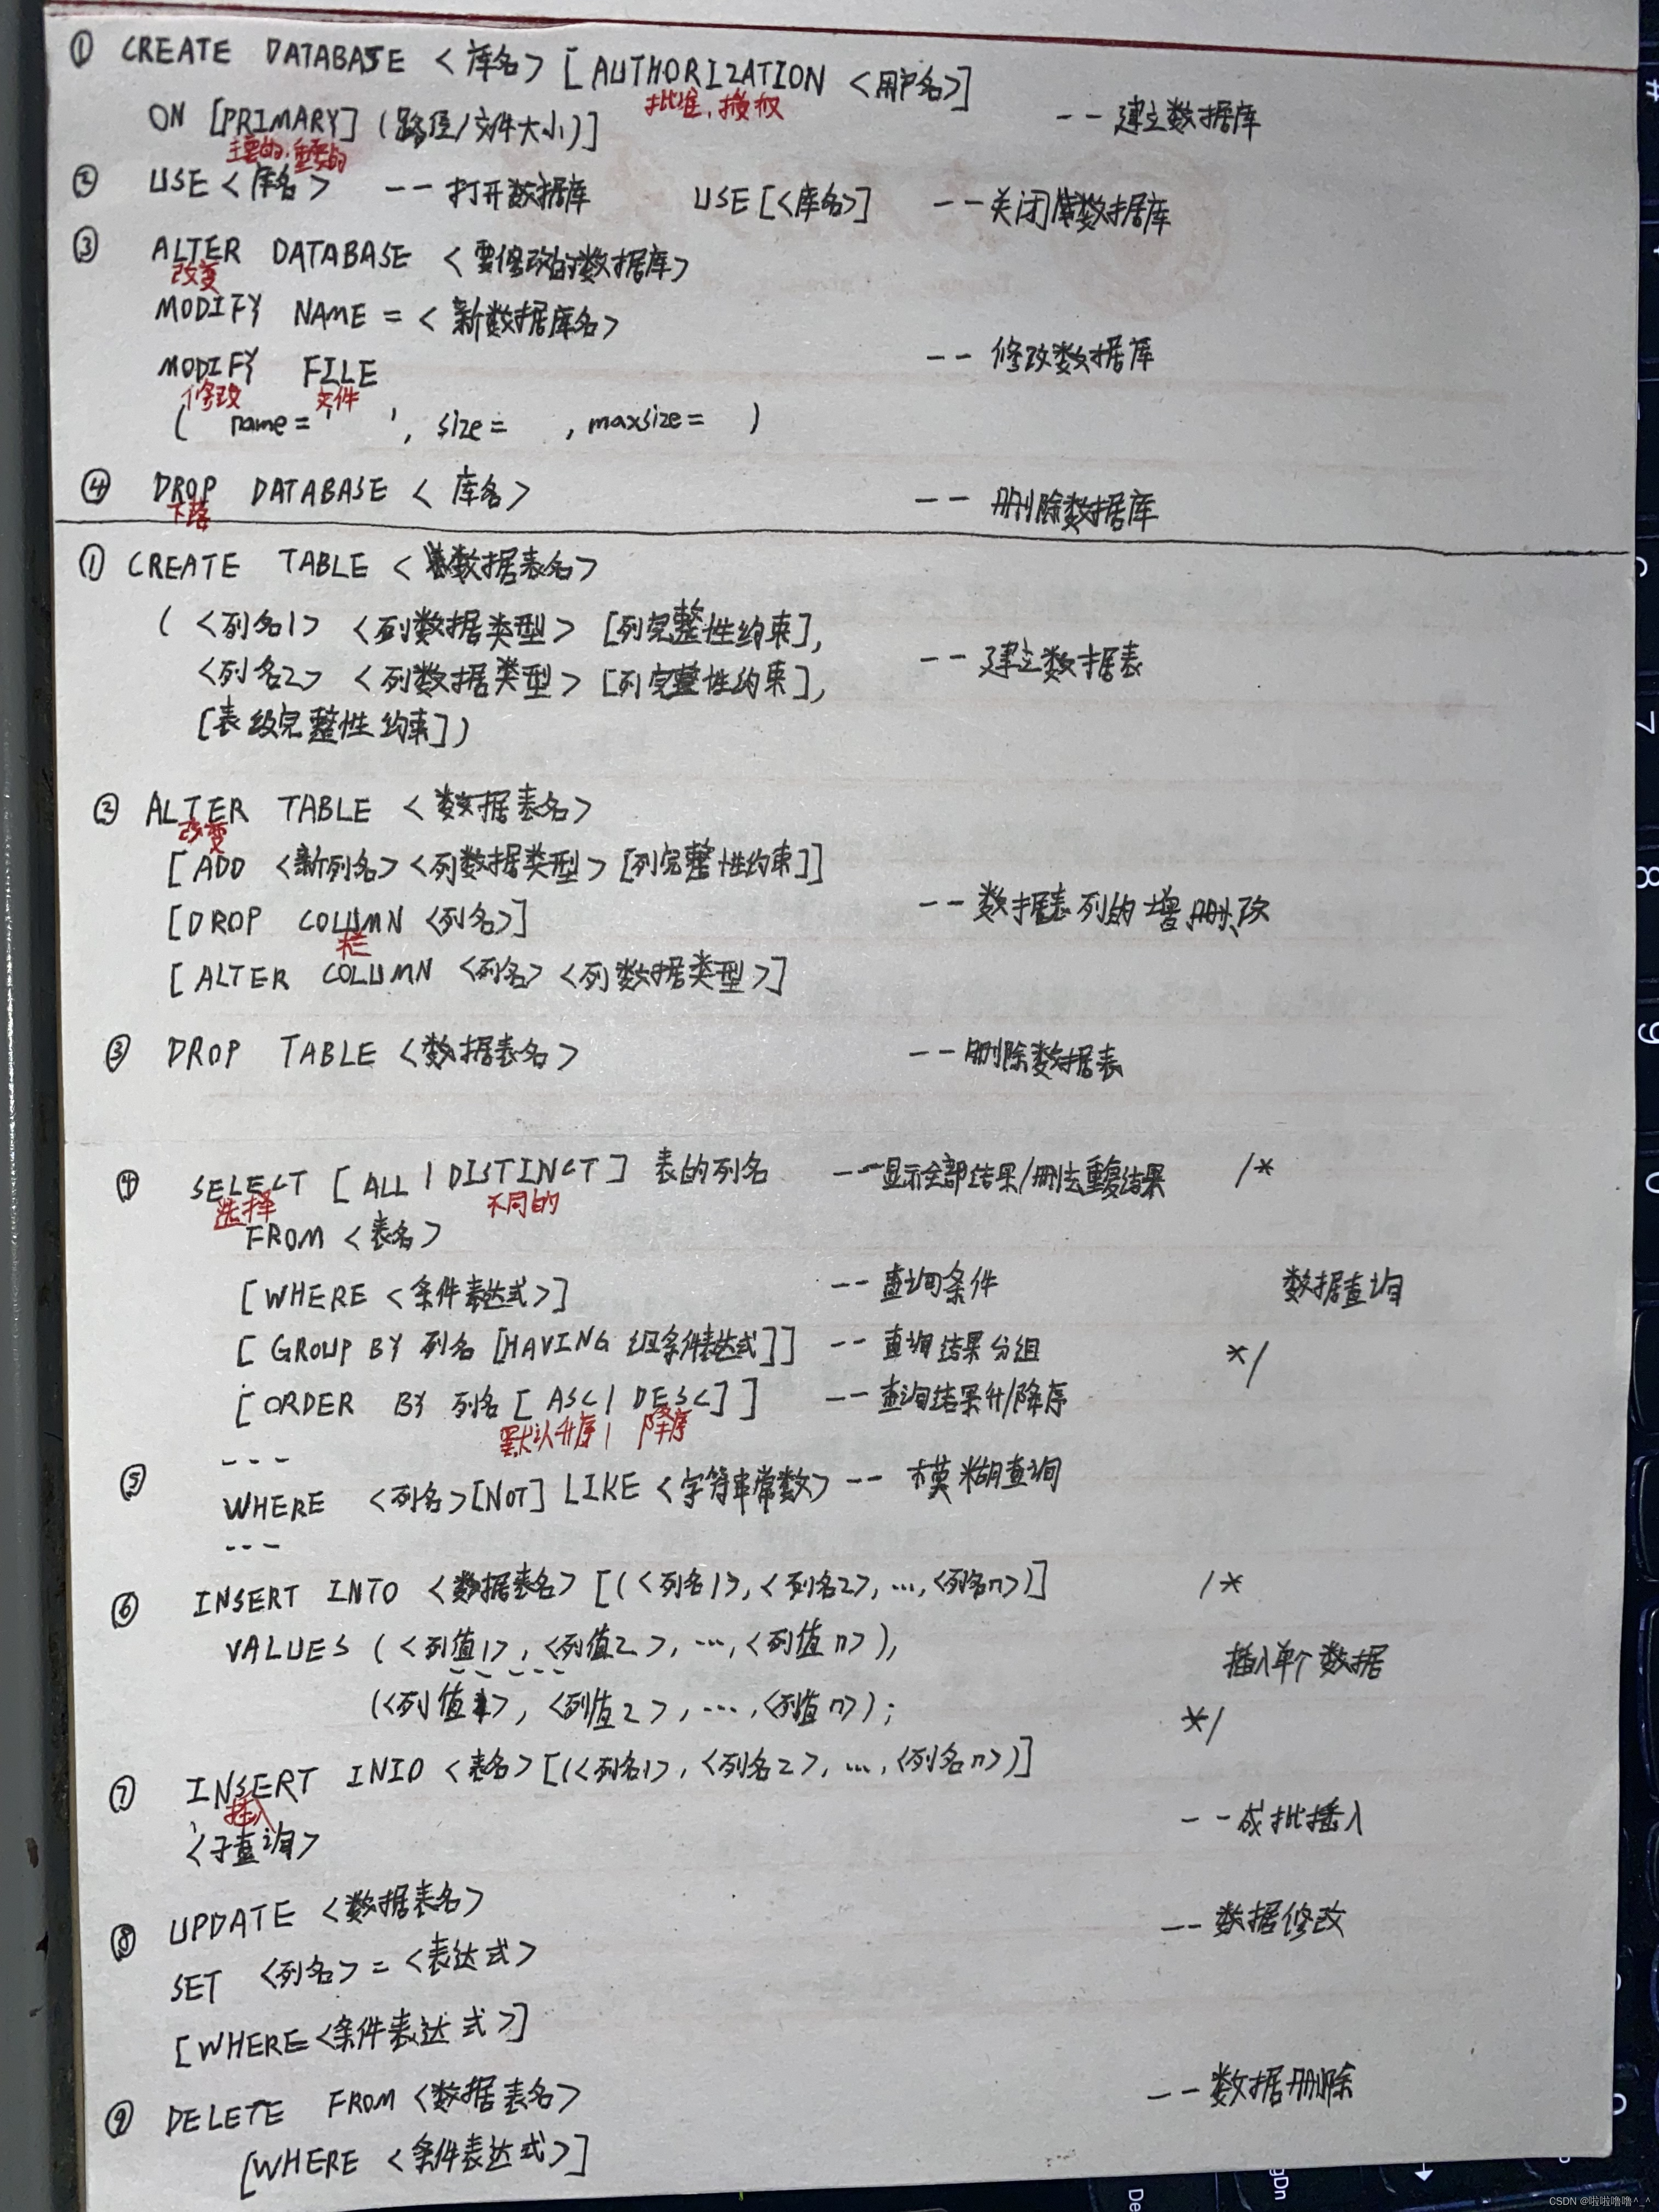 ① CREATE DATABASE <库名> [AUTHORIZATION <用户名>]
批准、授权
ON [PRIMARY] (路径/文件大小)] -- 建立数据库
主要的、重要的
② USE <库名> -- 打开数据库 USE [<库名>] -- 关闭数据库
③ ALTER DATABASE <要修改的数据库>
改变
MODIFY NAME = <新数据库名>
MODIFY FILE -- 修改数据库
修改 文件
( name = ' ', size = , maxsize = )
④ DROP DATABASE <库名> -- 删除数据库
下落
① CREATE TABLE <数据表名>
( <列名1> <列数据类型> [列完整性约束],
<列名2> <列数据类型> [列完整性约束], -- 建立数据表
[表级完整性约束])
② ALTER TABLE <数据表名>
改变
[ADD <新列名> <列数据类型> [列完整性约束]]
[DROP COLUMN <列名>] -- 数据表列的增、删、改
栏
[ALTER COLUMN <列名> <列数据类型>]
③ DROP TABLE <数据表名> -- 删除数据表
④ SELECT [ALL | DISTINCT] 表的列名 -- 显示全部结果/删去重复结果 /*
选择 不同的
FROM <表名>
[WHERE <条件表达式>] -- 查询条件 数据查询
[GROUP BY 列名 [HAVING 组条件表达式]] -- 查询结果分组 */
[ORDER BY 列名 [ASC | DESC]] -- 查询结果升/降序
默认升序 | 降序
---
⑤ WHERE <列名> [NOT] LIKE <字符串常数> -- 模糊查询
---
⑥ INSERT INTO <数据表名> [(<列名1>, <列名2>, ..., <列名n>)] /*
VALUES (<列值1>, <列值2>, ..., <列值n>), 插入单个数据
(<列值1>, <列值2>, ..., <列值n>); */
⑦ INSERT INTO <表名> [(<列名1>, <列名2>, ..., <列名n>)]
插入
<子查询> -- 成批插入
⑧ UPDATE <数据表名> -- 数据修改
SET <列名> = <表达式>
[WHERE <条件表达式>]
⑨ DELETE FROM <数据表名> -- 数据删除
[WHERE <条件表达式>]
#
6
7
8
9
0
De
gDn
CSDN @啦啦噜噜^_^